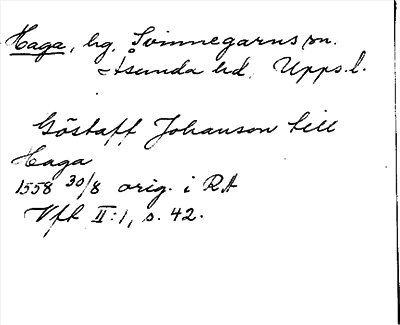 Haga, hg, Svinnegarns sn.
Åsunda hd, Upps. l.
Göstaff Johanson till
Haga
1558 30/8 orig. i RA
Vfl II:1, s. 42.